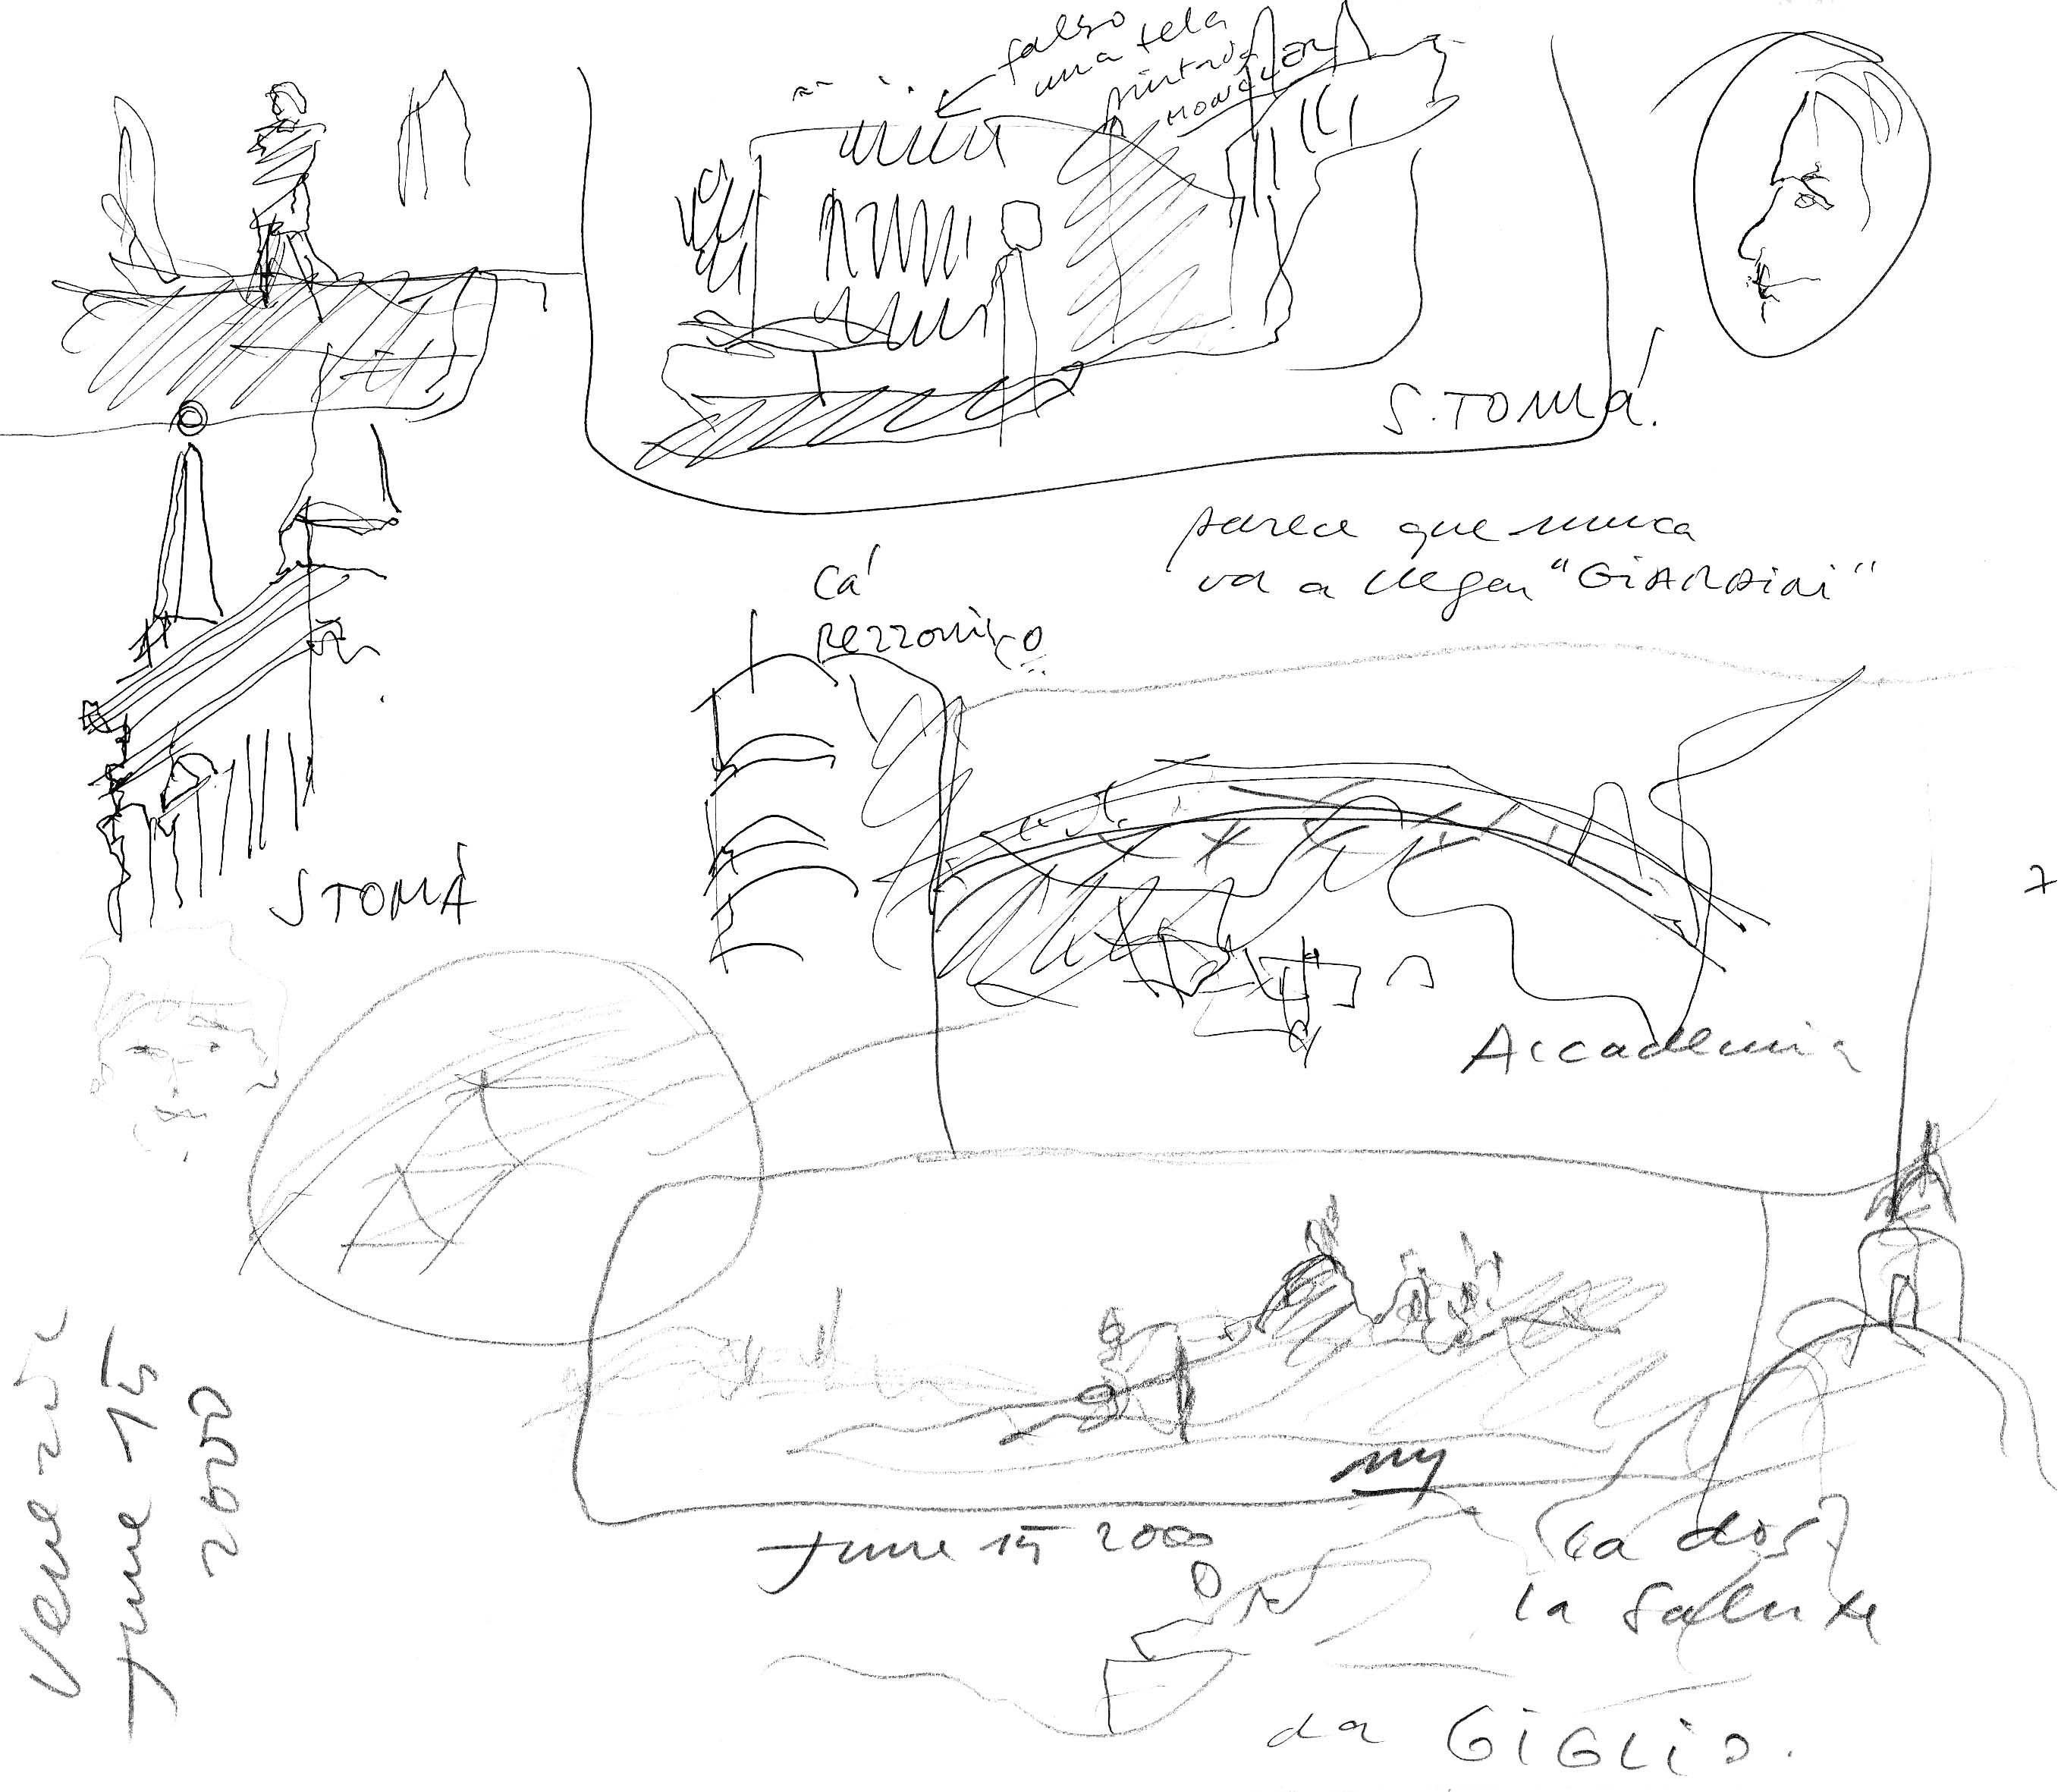 falso
una tela
pintada
S.TOMÁ.
parece que nunca
va a llegar "GIARDINI"
Ca'
Rezzonico
STOMÁ
Accademia
Venezia
June 15
2000
June 15 2000
la dos
la Salute
da GIGLIO.